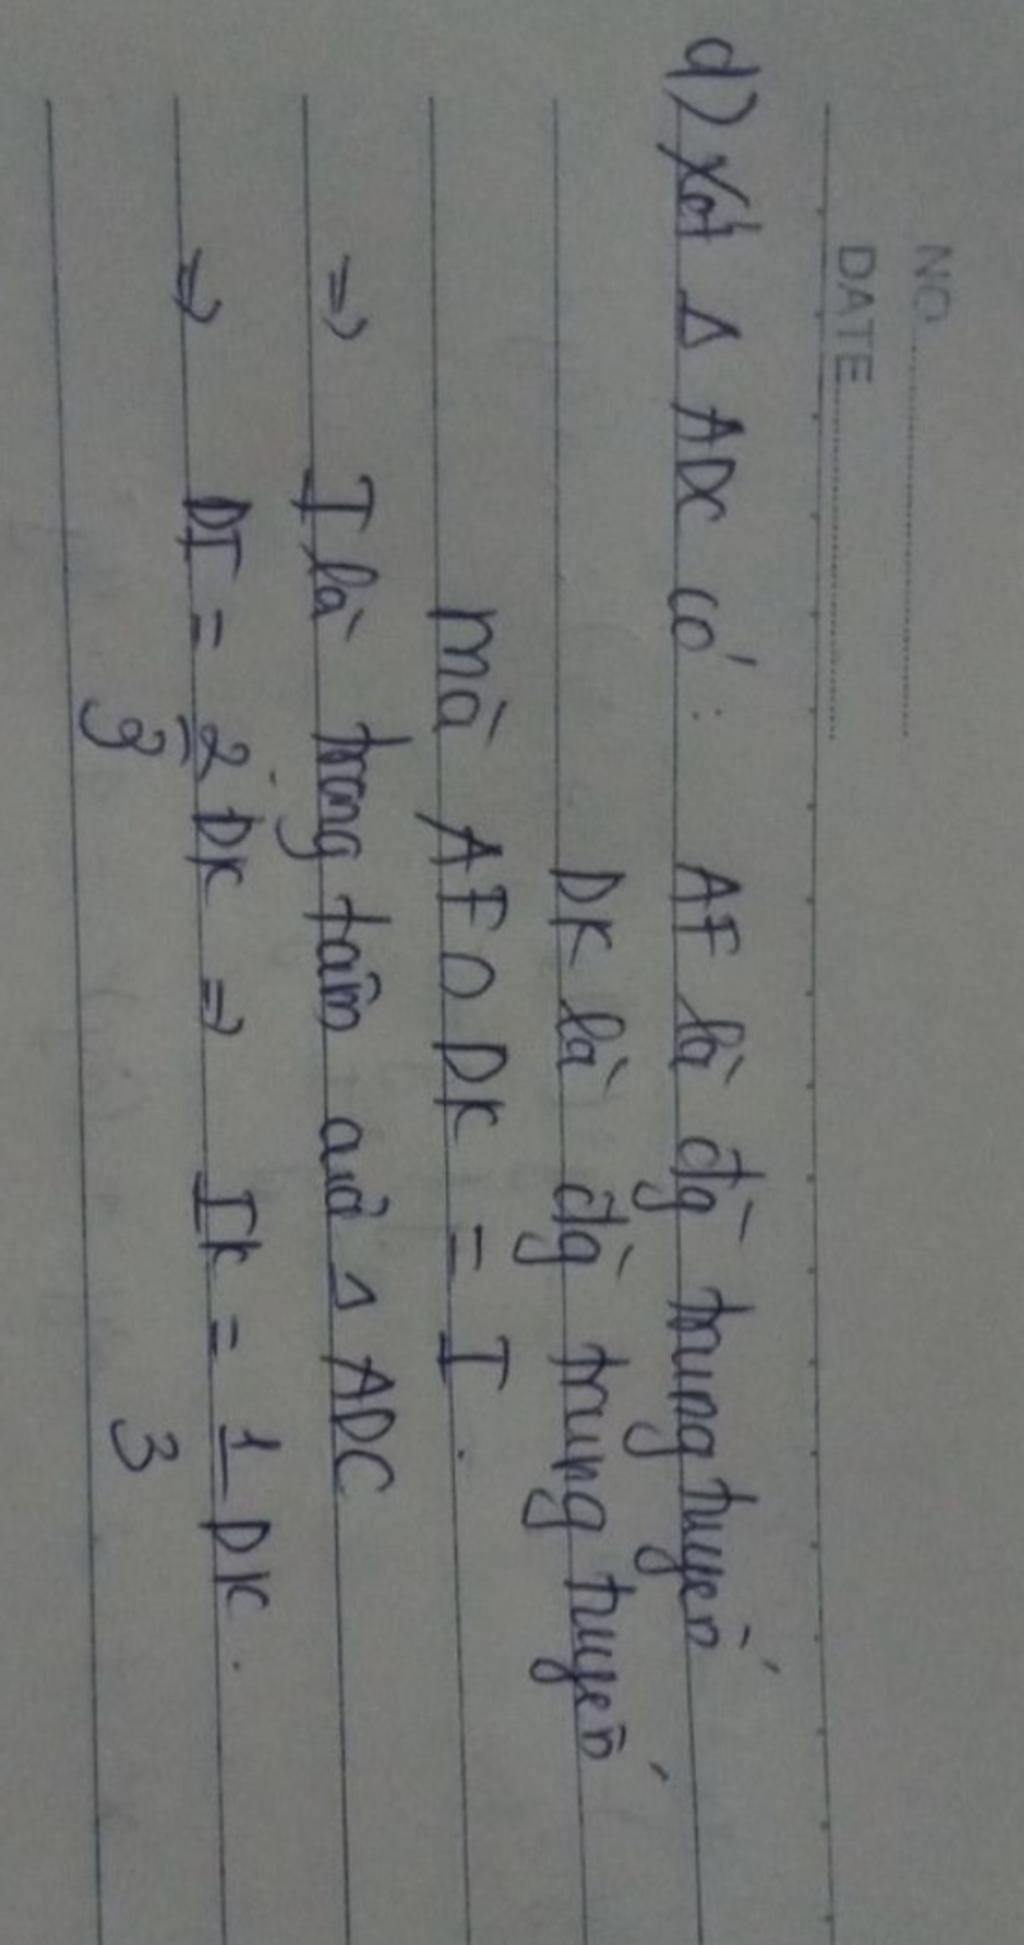 NO
DATE
d) Xét Δ ADC có: AF là đg̀ trung tuyến
DK là đg̀ trung tuyến
mà AF ∩ DK = I.
=> I là trọng tâm của Δ ADC
=> DI = 2/3 DK => IK = 1/3 DK.